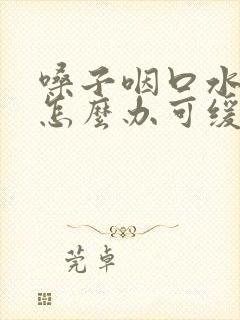 嗓子咽口水
怎麼办可缓
莞卓